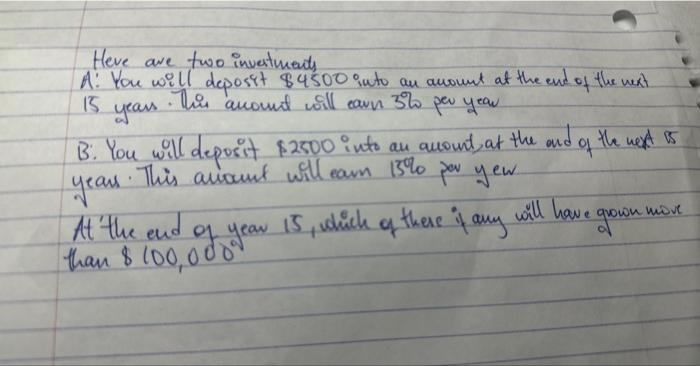 Here are two investments
A: You will deposit $4500 into an account at the end of the next
15 years. This account will earn 3% per year
B: You will deposit $2500 into an account, at the end of the next 15
years. This account will earn 13% per year
At the end of year 15, which of these if any will have grown more
than $100,000